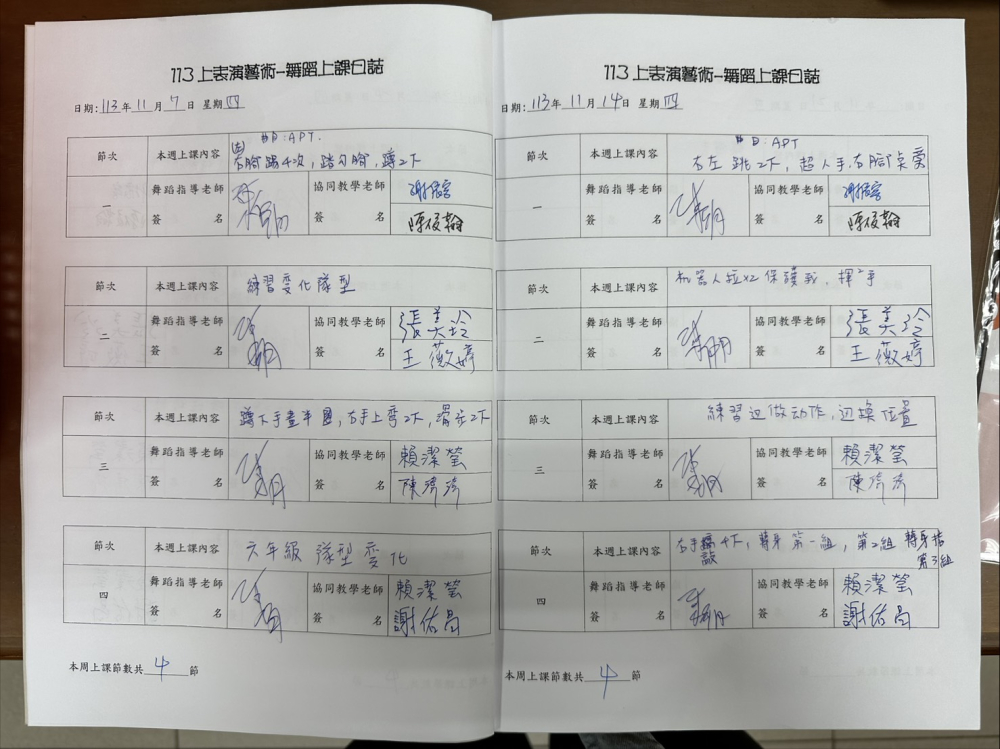 113上表演藝術-舞蹈上課日誌
日期:113年11月7日 星期四
節次 本週上課內容 節目:APT.
(右)右腳踢4次,踏勾腳,蹲2下
一 舞蹈指導老師簽名 協同教學老師簽名
陳俊翰
節次 本週上課內容 練習变化隊型
二 舞蹈指導老師簽名 協同教學老師簽名 張美玲
王薇婷
節次 本週上課內容 蹲下手畫半圓,右手上弯2下,滑步2下
三 舞蹈指導老師簽名 協同教學老師簽名 賴潔瑩
陳濟濤
節次 本週上課內容 六年級 隊型变化
四 舞蹈指導老師簽名 協同教學老師簽名 賴潔瑩
謝佑昌
本周上課節數共 4 節
113上表演藝術-舞蹈上課日誌
日期:113年11月14日 星期四
節次 本週上課內容 節目:APT
右左跳2下,超人手,右腳
一 舞蹈指導老師簽名 協同教學老師簽名
陳俊翰
節次 本週上課內容 机器人拉x2保護我,揮2手
二 舞蹈指導老師簽名 協同教學老師簽名 張美玲
王薇婷
節次 本週上課內容 練習边做动作,边換位置
三 舞蹈指導老師簽名 協同教學老師簽名 賴潔瑩
陳濟濤
節次 本週上課內容 右手敲4下,轉身第一組,第2組 轉身指
第3組
四 舞蹈指導老師簽名 協同教學老師簽名 賴潔瑩
謝佑昌
本周上課節數共 4 節